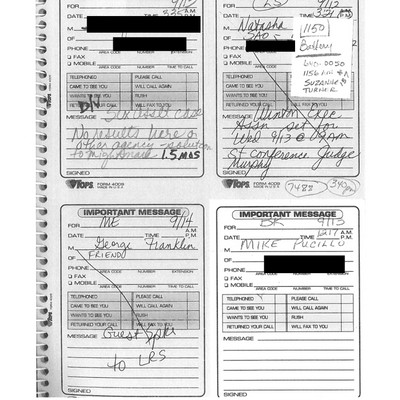 FOR
9/13
DATE
TIME
A.M.
P.M.
M
OF
PHONE
AREA CODE NUMBER EXTENSION
FAX
MOBILE
AREA CODE NUMBER TIME TO CALL
TELEPHONED PLEASE CALL
CAME TO SEE YOU WILL CALL AGAIN
WANTS TO SEE YOU RUSH
RETURNED YOUR CALL WILL FAX TO YOU
MESSAGE Sex asslt case
No results here or
other agency -
1.5 mos
SIGNED
TOPS FORM 4009
MADE IN U.S.A.
FOR 9/13
DATE TIME 3:21 A.M.
P.M.
M Natasha
OF
PHONE
FAX
MOBILE
1150
640.0050
SUZANNE &
TURNER
TELEPHONED
CAME TO SEE YOU
WANTS TO SEE YOU RUSH
RETURNED YOUR CALL WILL FAX TO YOU
MESSAGE Winton Exec
Assn set for
Wed 9/13 @
St Conference Judge
Murphy
SIGNED
TOPS FORM 4009
MADE IN U.S.A.
7488
IMPORTANT MESSAGE
FOR ME
DATE 9/14 TIME A.M.
P.M.
M George Franklin
OF FRIEND
PHONE
AREA CODE NUMBER EXTENSION
FAX
MOBILE
AREA CODE NUMBER TIME TO CALL
TELEPHONED PLEASE CALL
CAME TO SEE YOU WILL CALL AGAIN
WANTS TO SEE YOU RUSH
RETURNED YOUR CALL WILL FAX TO YOU
MESSAGE Guest Spkr
to LRS
SIGNED
IMPORTANT MESSAGE
FOR BK 9/13
DATE TIME 12:17 A.M.
P.M.
M MIKE PUCILLO
OF
PHONE
FAX
MOBILE
AREA CODE NUMBER TIME TO CALL
TELEPHONED PLEASE CALL
CAME TO SEE YOU WILL CALL AGAIN
WANTS TO SEE YOU RUSH
RETURNED YOUR CALL WILL FAX TO YOU
MESSAGE
SIGNED